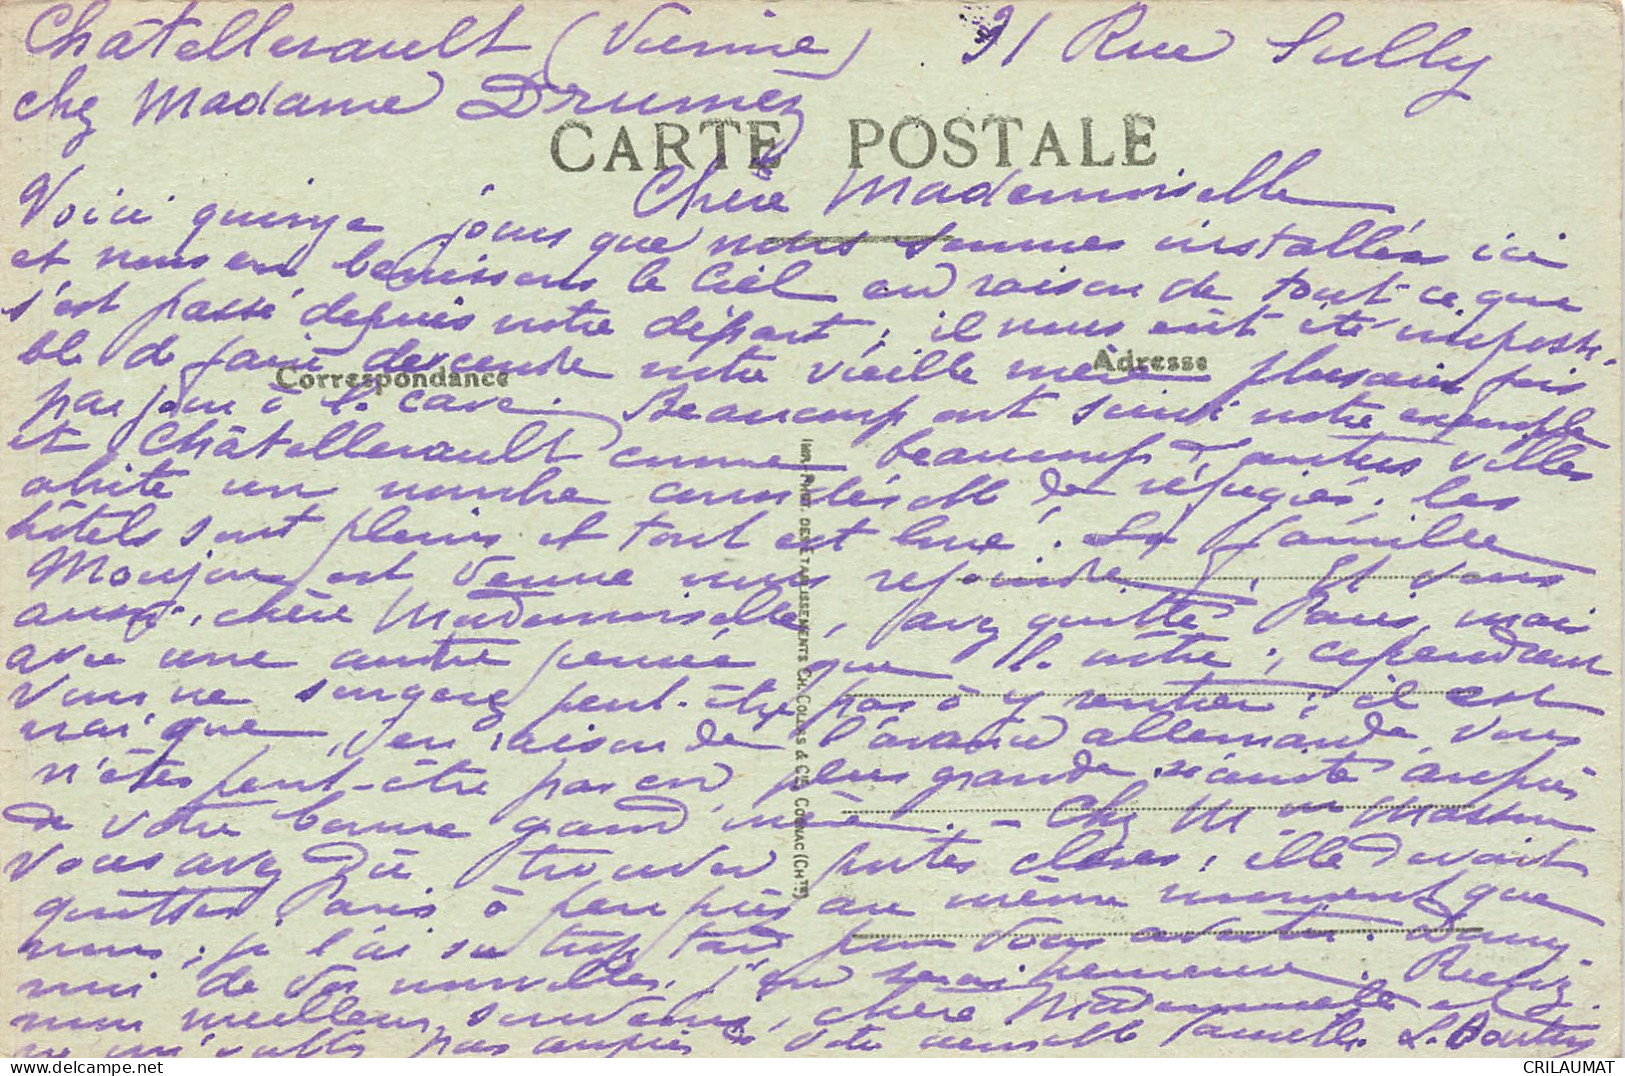 Châtellerault (Vienne) 91 Rue Sully
chez Madame Drumez
CARTE POSTALE
Chère Mademoiselle
Voici quinze jours que nous sommes installées ici
et nous en bénissons le Ciel en raison de tout ce que
s'est passé depuis notre départ ; il nous eût été impossi-
ble de faire descendre notre vieille mère plusieurs fois
Correspondance
Adresse
par jour à la cave. Beaucoup ont suivi notre exemple
et Châtellerault comme beaucoup d'autres villes
abrite un nombre considérable de réfugiés ; les
hôtels sont pleins et tout est loué. La famille
est venue nous rejoindre. Et vous
aussi, chère Mademoiselle, avez quitté Paris, mais
avec une autre pensée que la nôtre ; cependant
vous ne songez peut-être pas à y rentrer ; il est
vrai que, en raison de l'avance allemande, vous
n'êtes peut-être pas en plus grande sécurité auprès
de votre bonne grand'mère. – Chez Mme Masson
vous avez dû trouver portes closes ; elle devait
quitter Paris à peu près au même moment que
nous ; je l'ai su trop tard pour vous avertir. Donnez-
moi de vos nouvelles, j'en serai heureuse. Recevez
nos meilleurs souvenirs, chère Mademoiselle et
ne m'oubliez pas auprès de votre aimable famille. L.
IMP. PHOT. DES ETABLISSEMENTS CH. COLLAS & Cie COGNAC (CHte)
CRILAUMAT